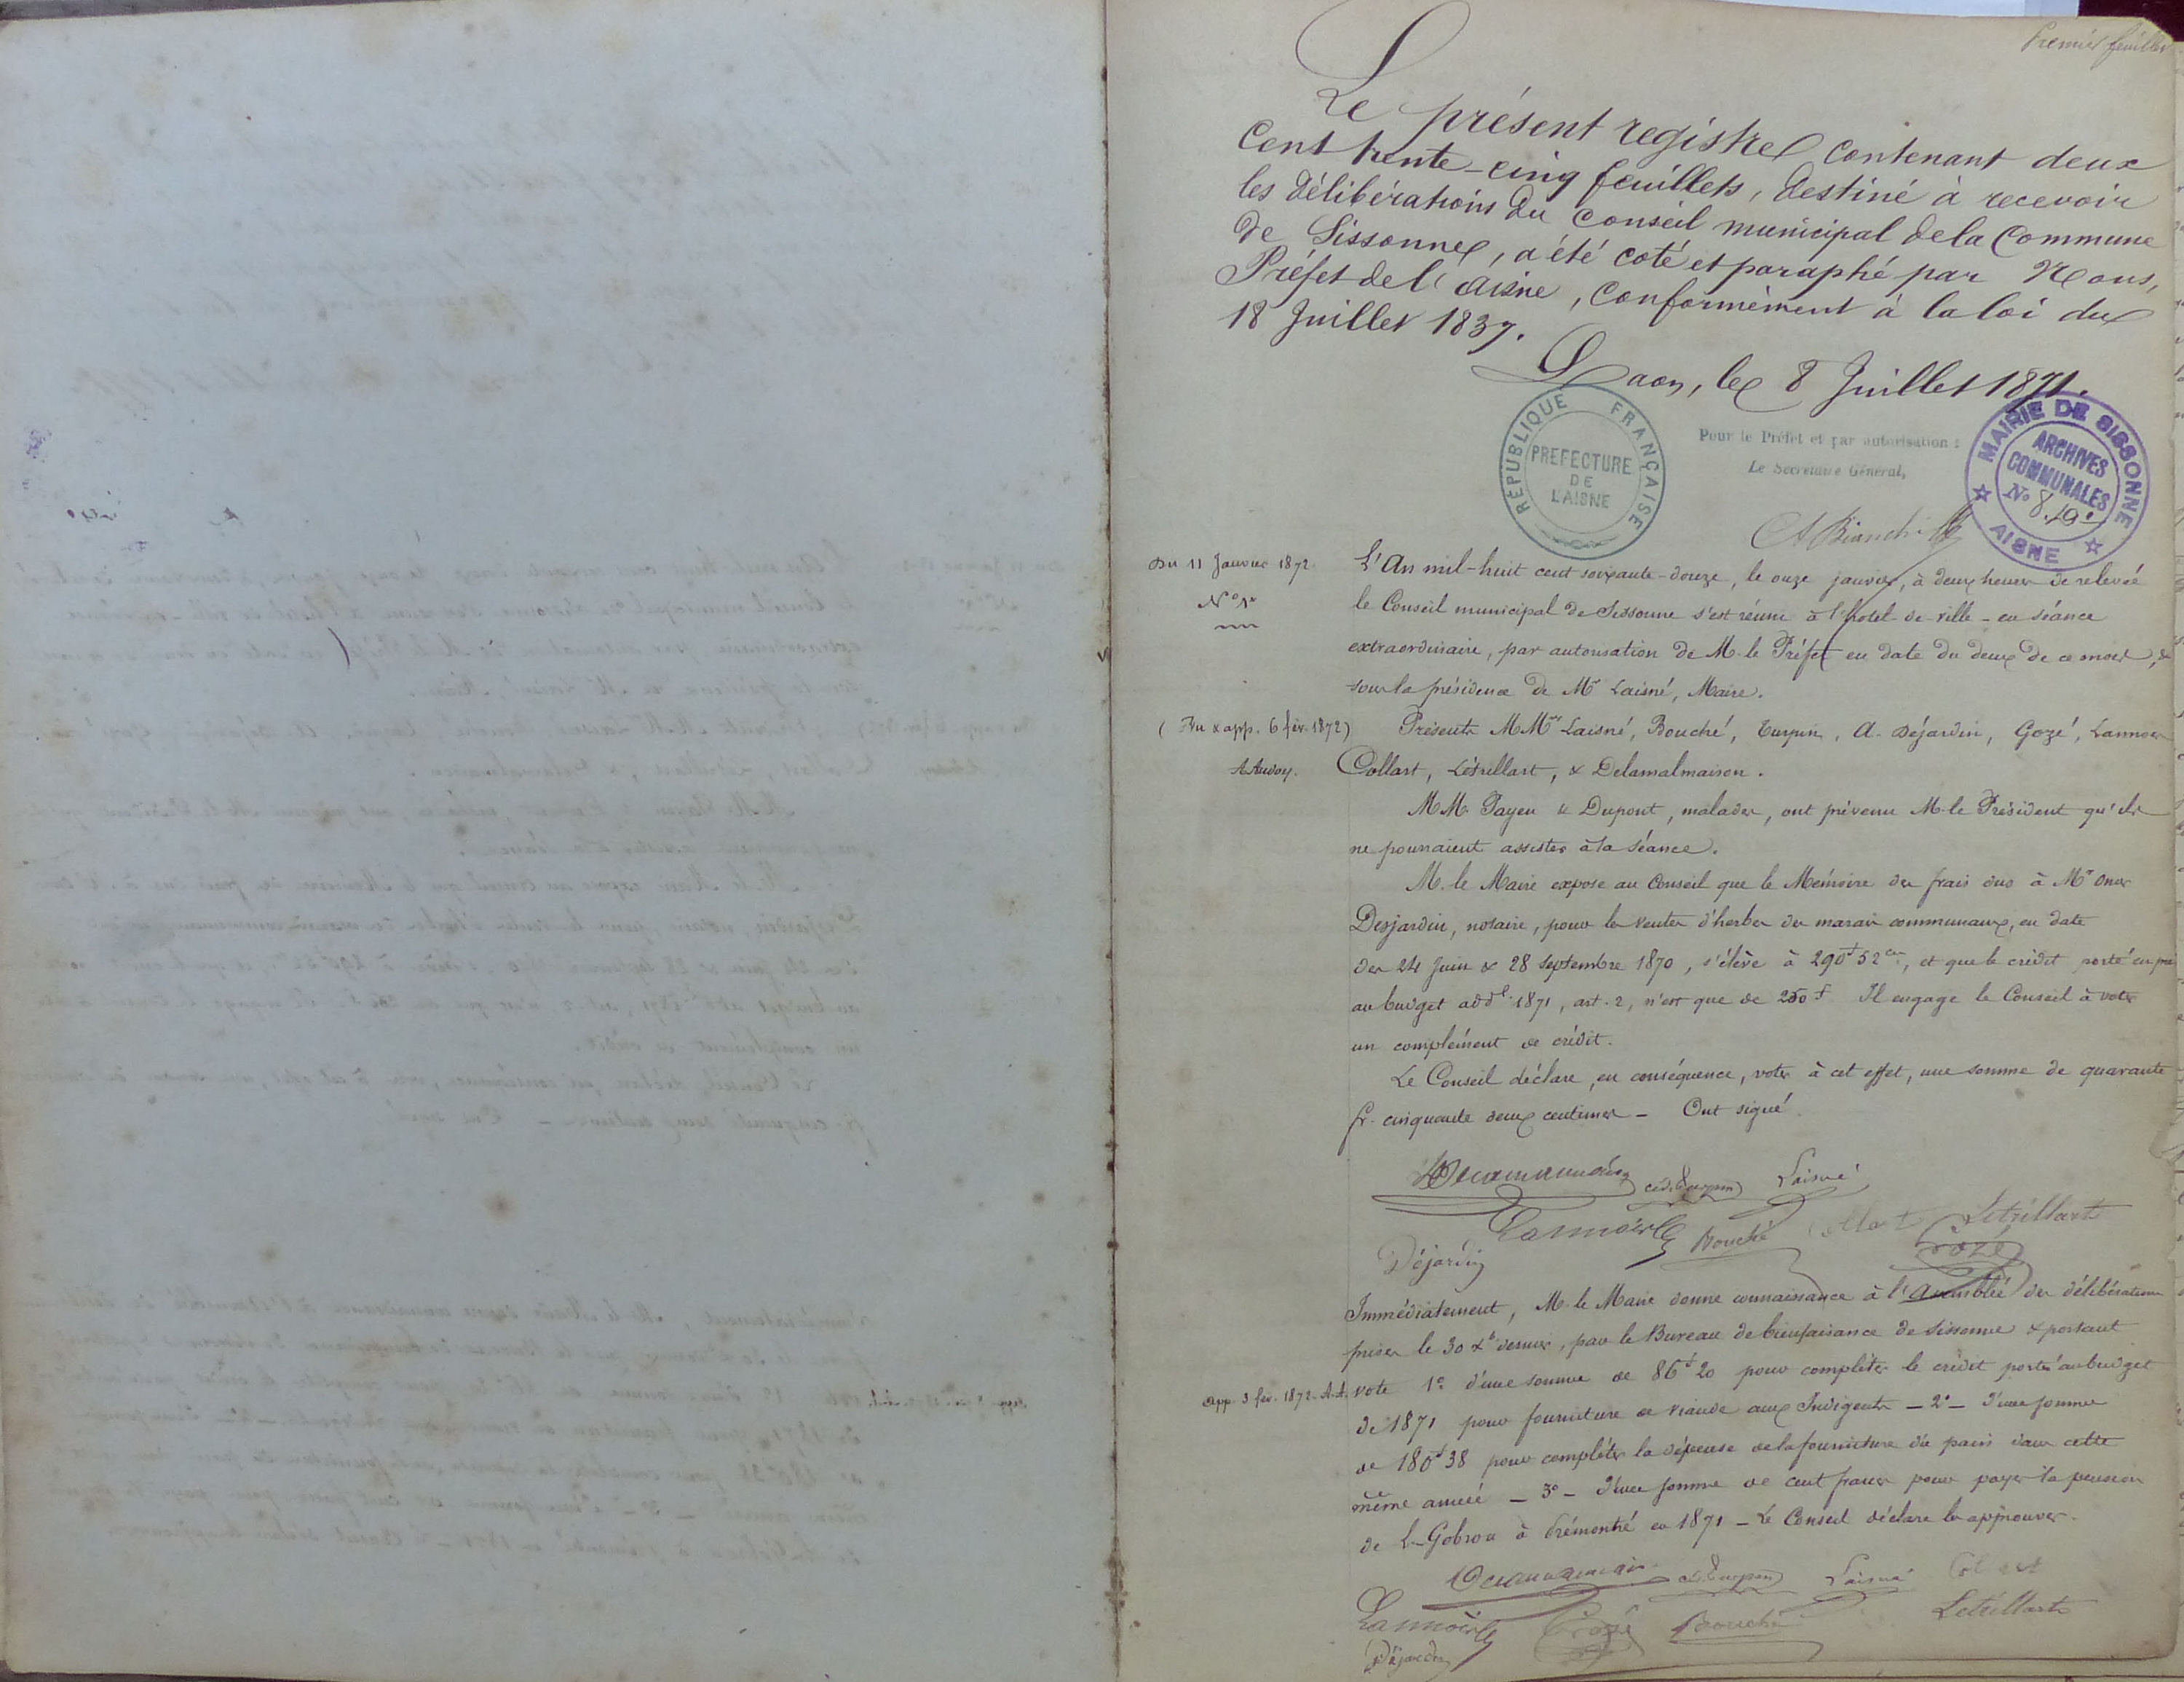 Premier feuillet
Le présent registre contenant deux
Cent trente-cinq feuillets, destiné à recevoir
les délibérations du Conseil municipal de la Commune
de Sissonne, a été coté et paraphé par Nous,
Préfet de l'Aisne, Conformément à la loi du
18 Juillet 1837.
Laon, le 8 Juillet 1871.
RÉPUBLIQUE FRANÇAISE
PREFECTURE
DE
L'AISNE
Pour le Préfet et par autorisation :
Le Secrétaire Général,
MAIRIE DE SISSONNE
ARCHIVES
COMMUNALES
No 8.
AISNE
Du 11 Janvier 1872
N° 1er
L'An mil-huit cent soixante-douze, le onze janvier, à deux heures de relevée
le Conseil municipal de Sissonne s'est réuni à l'hotel-de-ville - en séance
extraordinaire, par autorisation de M. le Préfet en date du deux de ce mois, &
sous la présidence de Mr Laisné, Maire.
(Vu & app. 6 fév. 1872)
A. Audoy.
Présents MMrs Laisné, Bouché, Turpin, A. Déjardin, Gozé, Lannois
Collart, Létrillart, & Delamalmaison.
MM. Payen & Dupont, malades, ont prévenu M. le Président qu'ils
ne pourraient assister à la séance.
M. le Maire expose au Conseil que le Mémoire des frais dus à Mr
Desjardin, notaire, pour les ventes d'herbes des marais communaux, en date
des 24 Juin & 28 Septembre 1870, s'élève à 290f 52cs, et que le crédit porté
au budget addl 1871, art. 2, n'est que de 250 f. Il engage le Conseil à voter
un complément de crédit.
Le Conseil déclare, en conséquence, voter à cet effet, une somme de quarante
fr. cinquante deux centimes - Ont signé
Laisné
Bouché
Létrillart
Gozé
Déjardin
Immédiatement, M. le Maire donne connaissance à l'assemblée des délibérations
prises le 30 Xb dernier, par le Bureau de bienfaisance de Sissonne & portant
app. 3 fév. 1872. A.A.
vote 1° d'une somme de 86f 20 pour compléter le crédit porté au budget
de 1871 pour fourniture de viande aux Indigents - 2° - D'une somme
de 180f 38 pour compléter la dépense de la fourniture du pain dans cette
même année - 3° - D'une somme de cent francs pour payer la pension
de L. Gobron à Prémontré en 1871 - Le Conseil déclare les approuver.
Laisné
Collart
Gozé
Bouché
Létrillart
Déjardin